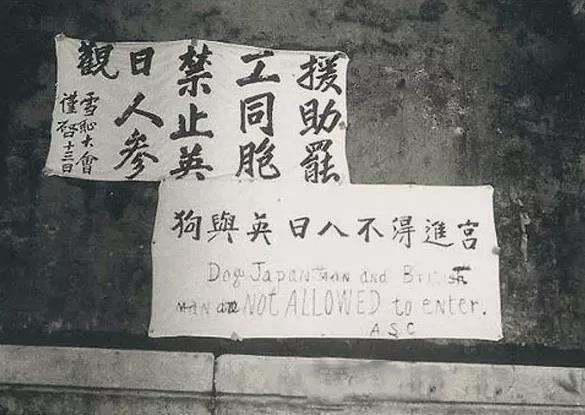 援助罷
工同胞
禁止英
日人參
觀
雪恥大會
謹啓十三日
狗與英日人不得進宮
Dog JAPANMAN and British
MAN are NOT ALLOWED to enter.
A.S.C